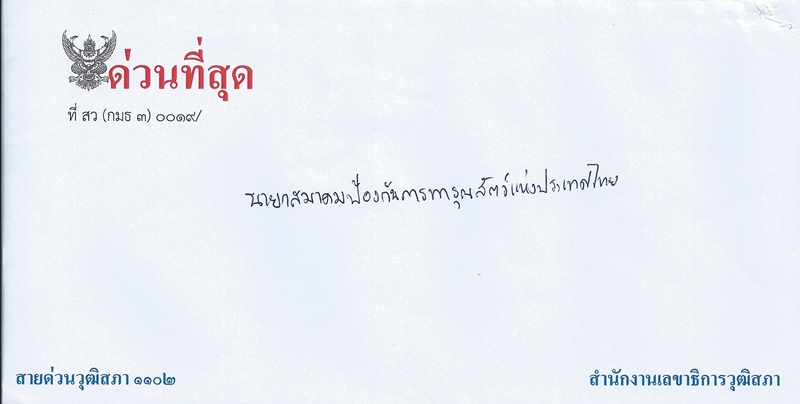 ด่วนที่สุด
ที่ สว (กมธ ๓) ๐๐๑๙/
นายกสมาคมป้องกันการทารุณสัตว์แห่งประเทศไทย
สายด่วนวุฒิสภา ๑๑๐๒
สำนักงานเลขาธิการวุฒิสภา